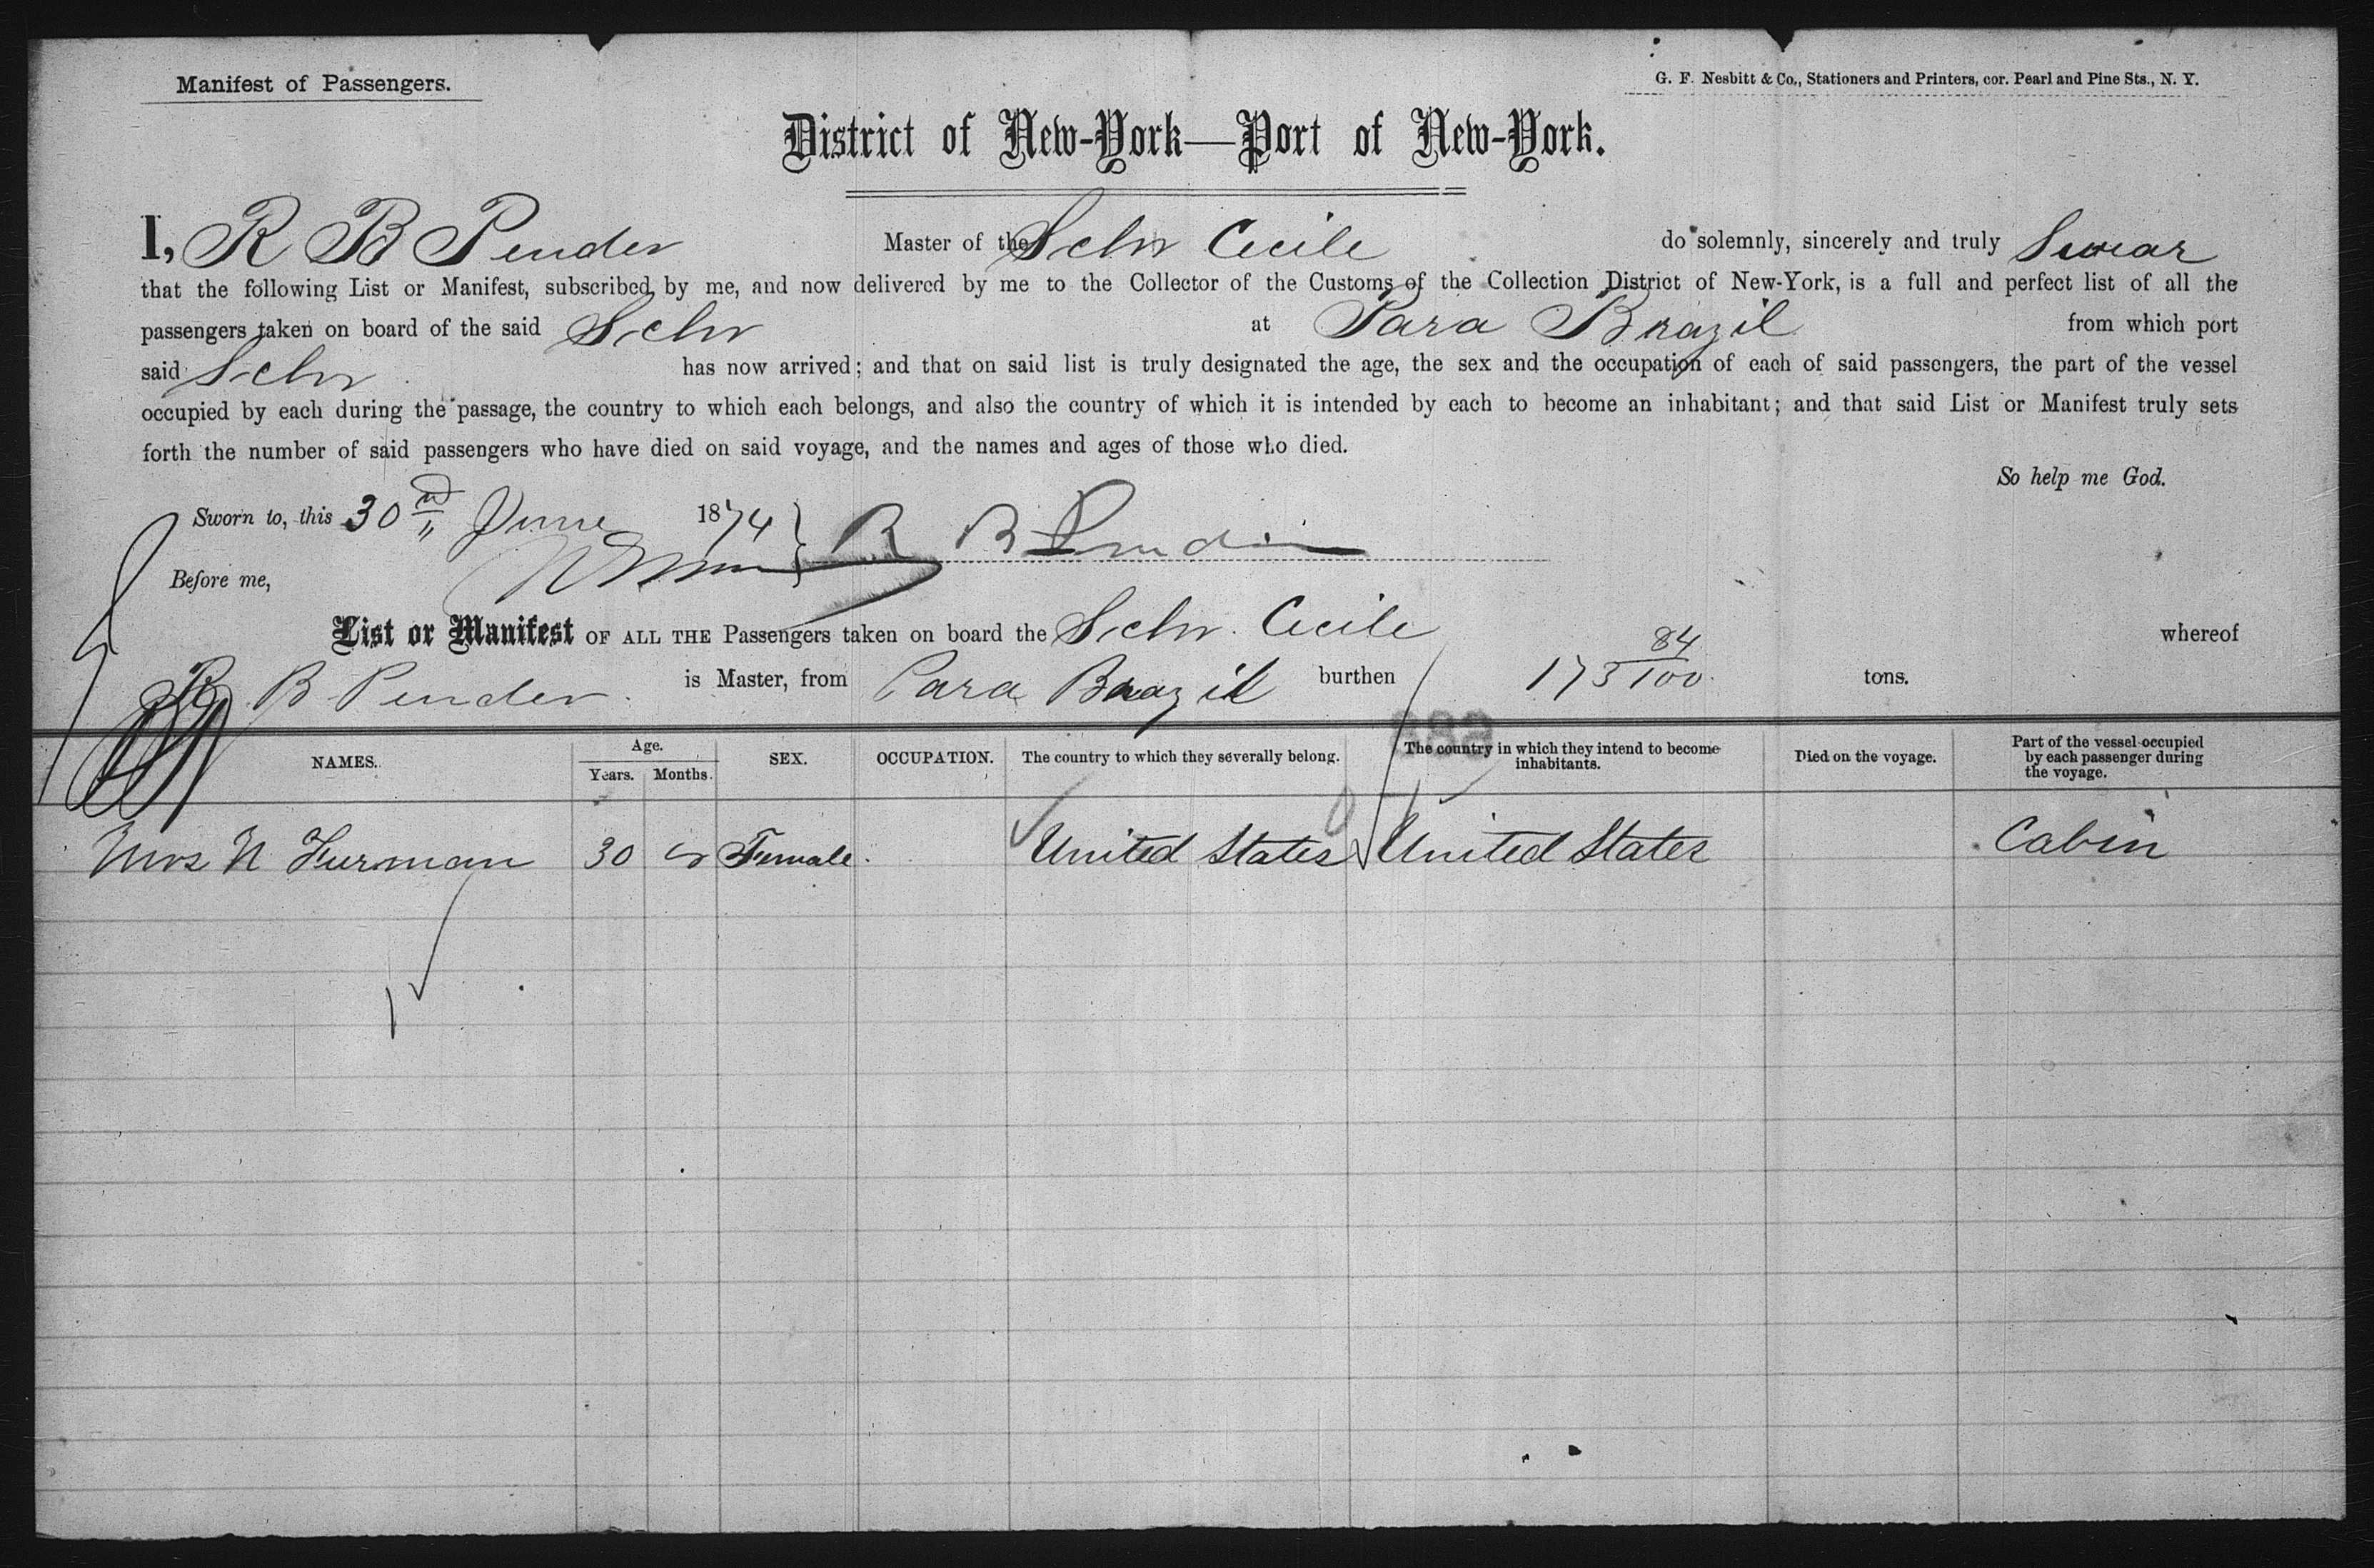 Manifest of Passengers.
G. F. Nesbitt & Co., Stationers and Printers, cor. Pearl and Pine Sts., N. Y.
District of New-York—Port of New-York.
I, R B Pender Master of the Schr Cecile do solemnly, sincerely and truly Swear
that the following List or Manifest, subscribed by me, and now delivered by me to the Collector of the Customs of the Collection District of New-York, is a full and perfect list of all the
passengers taken on board of the said Schr at Para Brazil from which port
said Schr has now arrived; and that on said list is truly designated the age, the sex and the occupation of each of said passengers, the part of the vessel
occupied by each during the passage, the country to which each belongs, and also the country of which it is intended by each to become an inhabitant; and that said List or Manifest truly sets
forth the number of said passengers who have died on said voyage, and the names and ages of those who died.
So help me God.
Sworn to, this 30nd June 1874 } R B Pender
Before me,
List or Manifest OF ALL THE Passengers taken on board the Schr. Cecile whereof
R B Pender is Master, from Para Brazil burthen 173 84/100 tons.
NAMES. Age. Years. Months. SEX. OCCUPATION. The country to which they severally belong. The country in which they intend to become inhabitants. Died on the voyage. Part of the vessel occupied by each passenger during the voyage.
Mrs N Furman 30 Female. United States United States Cabin